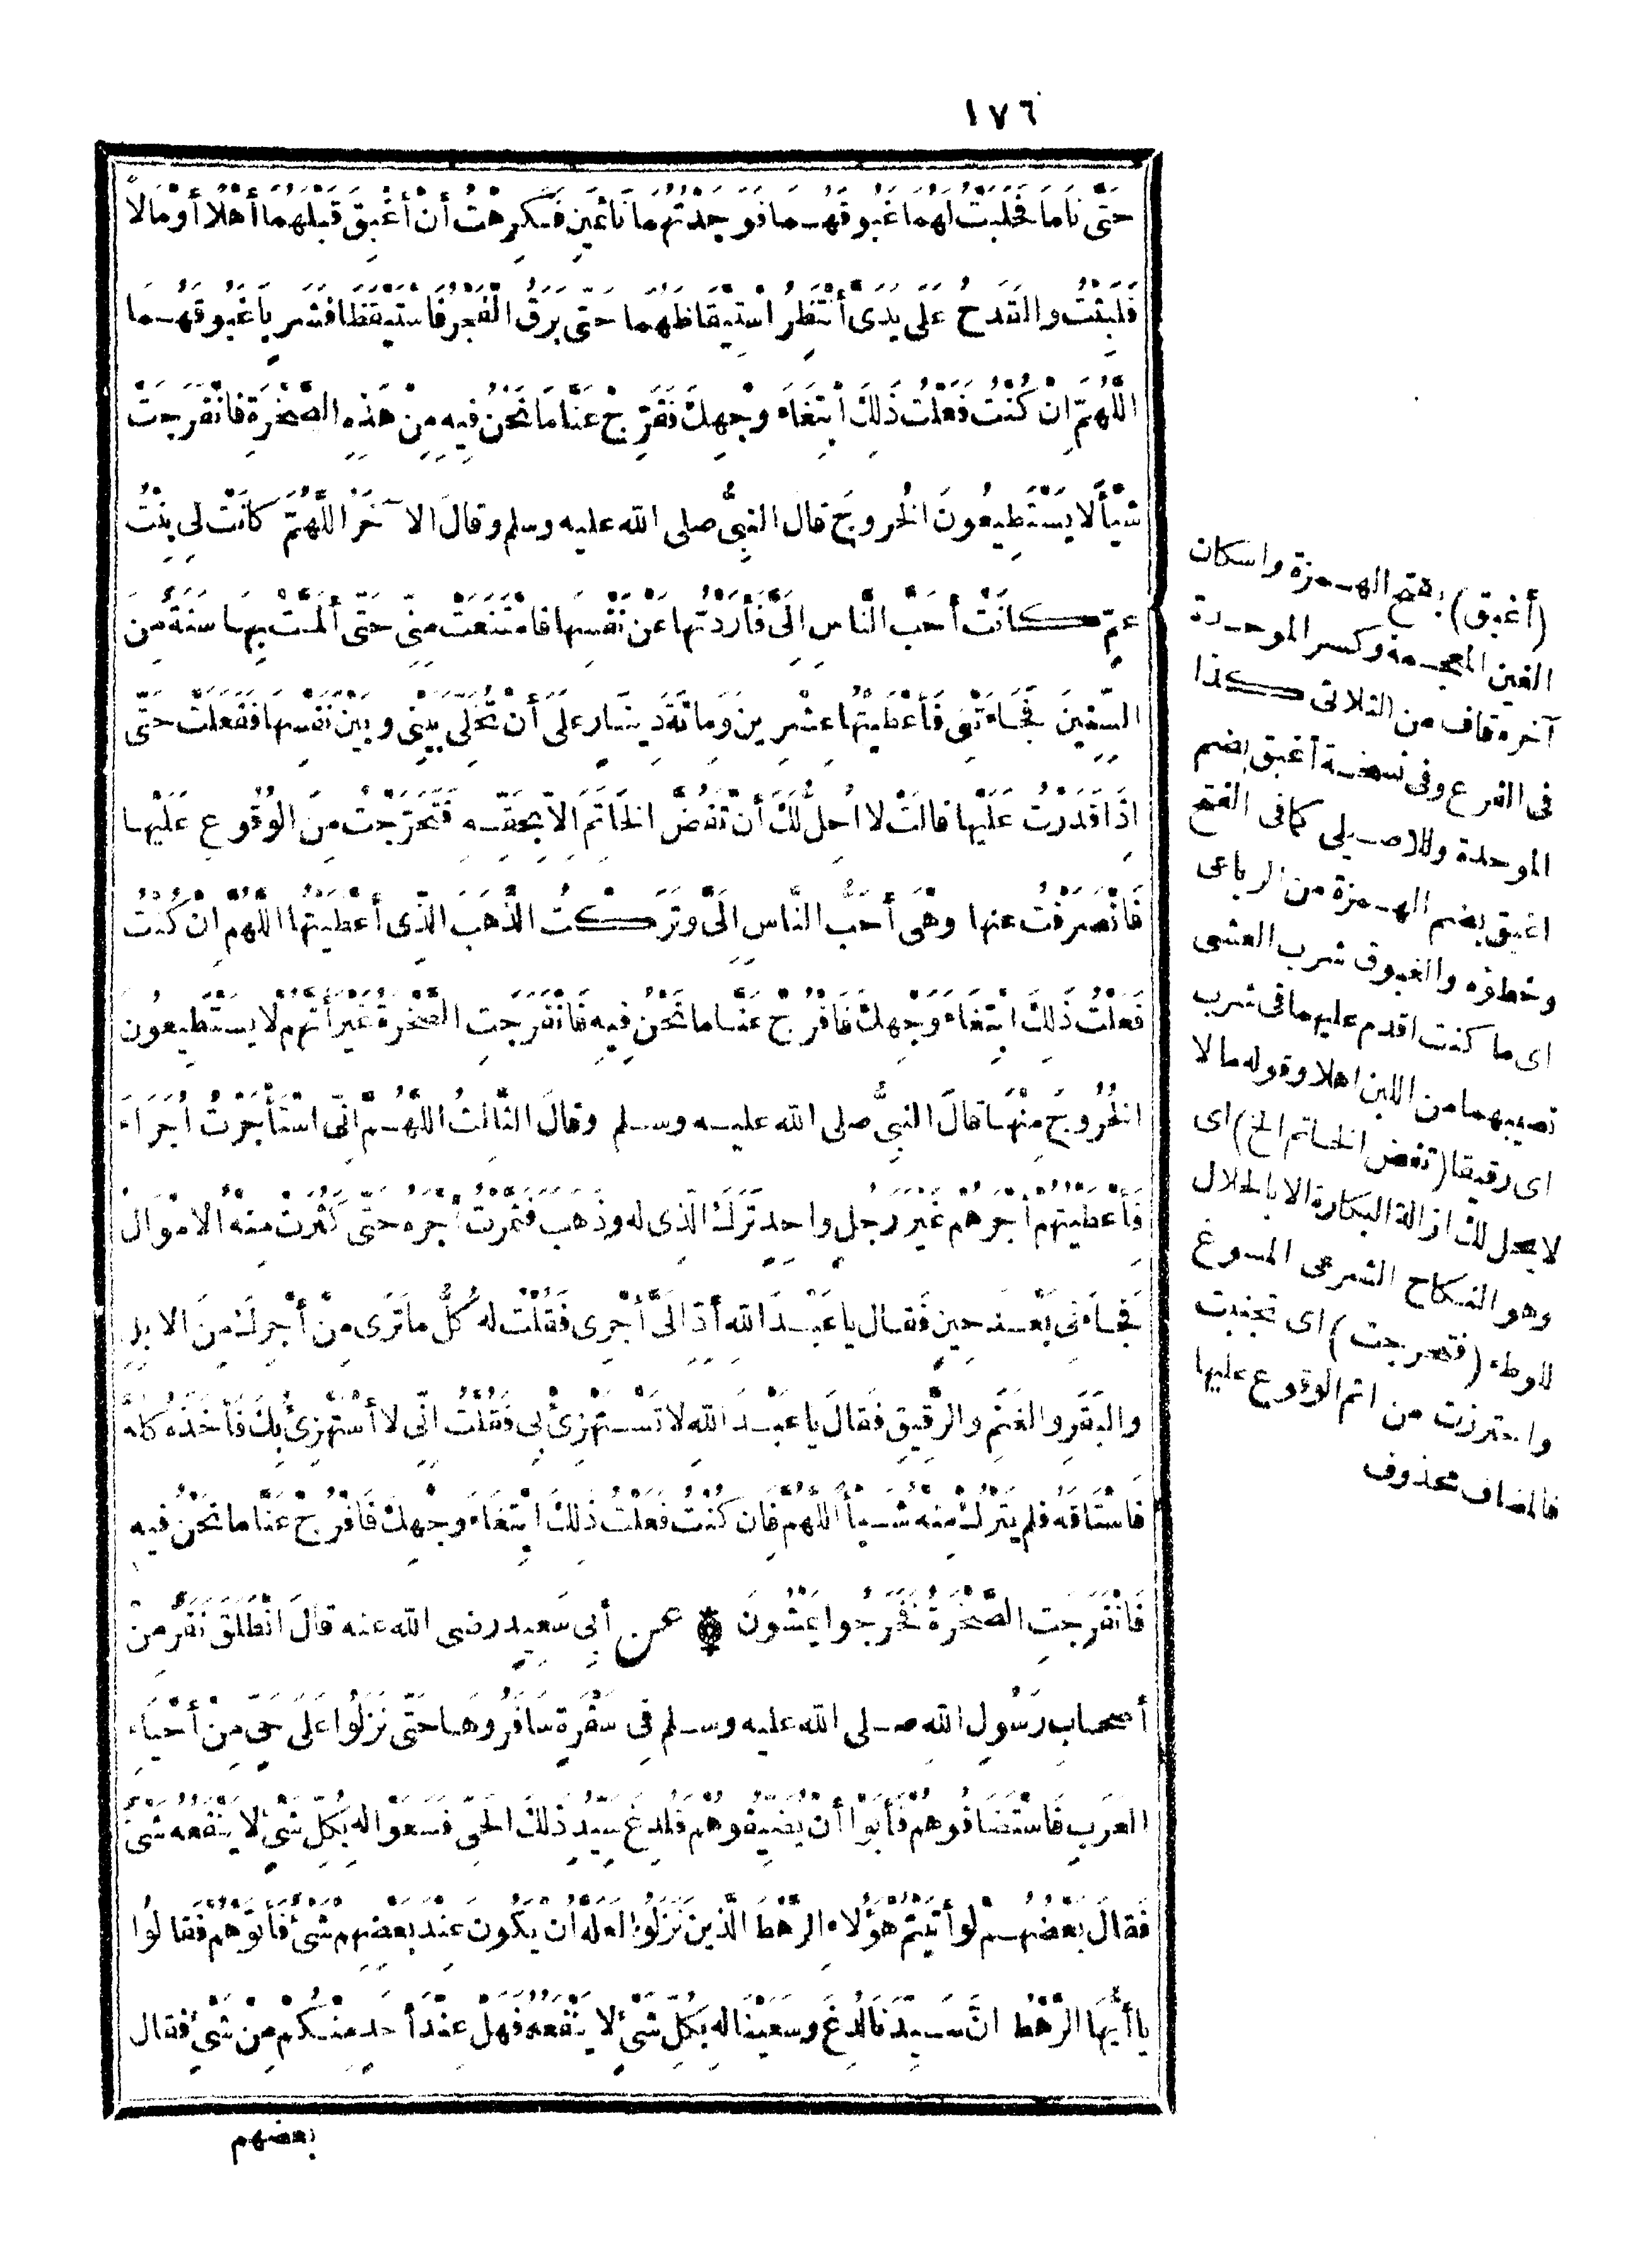 ١٧٦
حَتَّى نَامَا فَحَلَبْتُ لَهُمَا غَبُوقَهُمَا فَوَجَدْتُهُمَا نَائِمَيْنِ فَكَرِهْتُ أَنْ أَغْبِقَ قَبْلَهُمَا أَهْلًا أَوْ مَالًا
فَلَبِثْتُ وَالقَدَحُ عَلَى يَدَيَّ أَنْتَظِرُ اسْتِيقَاظَهُمَا حَتَّى بَرَقَ الْفَجْرُ فَاسْتَيْقَظَا فَشَرِبَا غَبُوقَهُمَا
اللَّهُمَّ اِنْ كُنْتُ فَعَلْتُ ذَلِكَ ابْتِغَاءَ وَجْهِكَ فَفَرِّجْ عَنَّا مَا نَحْنُ فِيهِ مِنْ هَذِهِ الصَّخْرَةِ فَانْفَرَجَتْ
شَيْأً لَا يَسْتَطِيعُونَ الْخُرُوجَ قال النَّبِيُّ صلى الله عليه وسلم وقالَ الآخَرُ اللَّهُمَّ كَانَتْ لِي بِنْتُ
عَمٍّ كَانَتْ أَحَبَّ النَّاسِ اِلَىَّ فَأَرَدْتُهَا عَنْ نَفْسِهَا فَامْتَنَعَتْ مِنِّى حَتَّى أَلَمَّتْ بِهَا سَنَةٌ مِنَ
السِّنِينَ فَجَاءَتْنِى فَأَعْطَيْتُهَا عِشْرِينَ وَمِائَةَ دِينَارٍ عَلَى أَنْ تُخَلِّىَ بَيْنِى وَبَيْنَ نَفْسِهَا فَفَعَلَتْ حَتَّى
اِذَا قَدَرْتُ عَلَيْهَا قالَتْ لا اُحِلُّ لَكَ أَنْ تَفُضَّ الْخَاتَمَ اِلَّا بِحَقِّهِ فَتَحَرَّجْتُ مِنَ الْوُقُوعِ عَلَيْهَا
فَانْصَرَفْتُ عنها وَهْىَ أَحَبُّ النَّاسِ اِلَىَّ وَتَرَكْتُ الذَّهَبَ الَّذِى أَعْطَيْتُهَا اللَّهُمَّ اِنْ كُنْتُ
فَعَلْتُ ذَلِكَ ابْتِغَاءَ وَجْهِكَ فَافْرُجْ عَنَّا مَا نَحْنُ فِيهِ فَانْفَرَجَتِ الصَّخْرَةُ غَيْرَ أَنَّهُمْ لَا يَسْتَطِيعُونَ
الْخُرُوجَ مِنْهَا قَالَ النبىُّ صلى الله عليه وسلم وقالَ الثَّالِثُ اللَّهُمَّ اِنِّى اسْتَأْجَرْتُ اُجَرَاءَ
فَأَعْطَيْتُهُمْ أَجْرَهُمْ غَيْرَ رَجُلٍ واحِدٍ تَرَكَ الَّذِى له وَذَهَبَ فَثَمَّرْتُ أَجْرَهُ حَتَّى كَثُرَتْ مِنْهُ الْأَمْوَالُ
فَجَاءَنِى بَعْدَ حِينٍ فَقال يا عَبْدَ الله أَدِّ اِلَىَّ أَجْرِى فَقُلْتُ له كُلُّ ما تَرَى مِنْ أَجْرِكَ مِنَ الابِلِ
والبَقَرِ والغَنَمِ والرَّقِيقِ فَقالَ يا عَبْدَ الله لا تَسْتَهْزِئْ بِى فَقُلْتُ اِنِّى لا أَسْتَهْزِئُ بِكَ فَأَخَذَهُ كلَّهُ
فَاسْتَاقَهُ فلم يَتْرُكْ مِنْهُ شَيْأً اللَّهُمَّ فَاِنْ كُنْتُ فَعَلْتُ ذَلِكَ ابْتِغَاءَ وَجْهِكَ فَافْرُجْ عَنَّا ما نَحْنُ فِيهِ
فَانْفَرَجَتِ الصَّخْرَةُ فَخَرَجُوا يَمْشُونَ ۞ عن أَبِى سَعِيدٍ رضى الله عنه قالَ انْطَلَقَ نَفَرٌ مِنْ
أَصحابِ رَسُولِ اللهِ صلى الله عليه وسلم فِى سَفْرَةٍ سَافَرُوهَا حَتَّى نَزَلُوا عَلَى حَىٍّ مِنْ أَحْيَاءِ
العَرَبِ فَاسْتَضَافُوهُمْ فَأَبَوْا أَنْ يُضَيِّفُوهُمْ فَلُدِغَ سَيِّدُ ذَلِكَ الْحَىِّ فَسَعَوْا لَهُ بِكُلِّ شَىْءٍ لَا يَنْفَعُهُ شَىْءٌ
فَقالَ بَعْضُهُمْ لَوْ أَتَيْتُمْ هَؤُلاءِ الرَّهْطَ الَّذِينَ نَزَلُوا لَعَلَّهُ أَنْ يَكُونَ عِنْدَ بَعْضِهِمْ شَىْءٌ فَأَتَوْهُمْ فَقَالُوا
يا أَيُّهَا الرَّهْطُ اِنَّ سَيِّدَنَا لُدِغَ وَسَعَيْنَا لَهُ بِكُلِّ شَىْءٍ لَا يَنْفَعُهُ فَهَلْ عِنْدَ أَحَدٍ مِنْكُمْ مِنْ شَىْءٍ فقال
بعضهم
(أغبق) بفتح الهمزة واسكان
الغين المعجمة وكسر الموحدة
آخره قاف من الثلاثى كذا
فى الفرع وفى نسخة أغبق بضم
الموحدة وللاصيلى كما فى الفتح
اغبق بضم الهمزة من الرباعى
وخطؤه والغبوق شرب العشى
اى ما كنت اقدم عليهما فى شرب
نصيبهما من اللبن اهلا وقوله مالا
اى رقيقا (تفض الخاتم الخ) اى
لا يحل لك ازالة البكارة الا بالحلال
وهو النكاح الشرعى المسوغ
للوطء (فتحرجت) اى تجنبت
واحترزت من اثم الوقوع عليها
فالمضاف محذوف